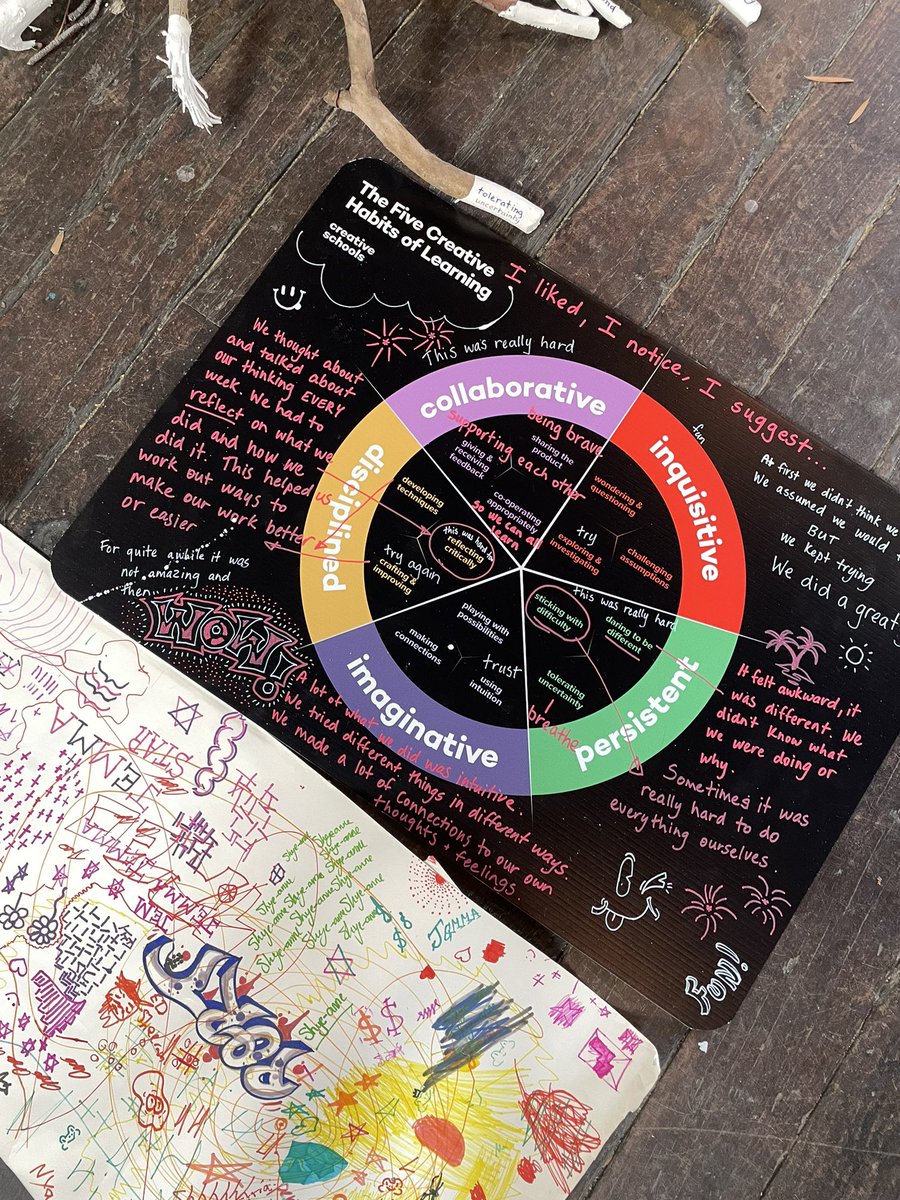 tolerating
uncertainty
The Five Creative
Habits of Learning
creative
schools
I liked, I notice, I suggest...
This was really hard
We thought about
and talked about
our thinking EVERY
week. We had to
reflect on what we
did and how we
did it. This helped us
work out ways to
make our work better
or easier
For quite awhile it was
not amazing and
then
WOW!
collaborative
being brave
supporting each other
so we can all
learn
giving &
receiving
feedback
sharing the
product
co-operating
appropriately
inquisitive
fun
wondering &
questioning
try
exploring &
investigating
challenging
assumptions
At first we didn't think we
We assumed we would
BUT
we kept trying
We did a great
disciplined
developing
techniques
this was hard
reflecting
critically
try again
crafting &
improving
imaginative
playing with
possibilities
making
connections
trust
using
intuition
persistent
this was really hard
sticking with
difficulty
daring to be
different
tolerating
uncertainty
breathe
It felt awkward, it
was different. We
didn't know what
we were doing or
why.
Sometimes it was
really hard to do
everything ourselves
A lot of what we did was intuitive.
We tried different things in different ways.
We made a lot of connections to our own
thoughts + feelings
FUN!
EMMA
STAR
JEMMA
JEMMA
Shye-anne
Shye-anne
Shye-anne
Shye-anne
Shye-anne
Shye-anne
Shye-anne
JEMMA
Shye-anne